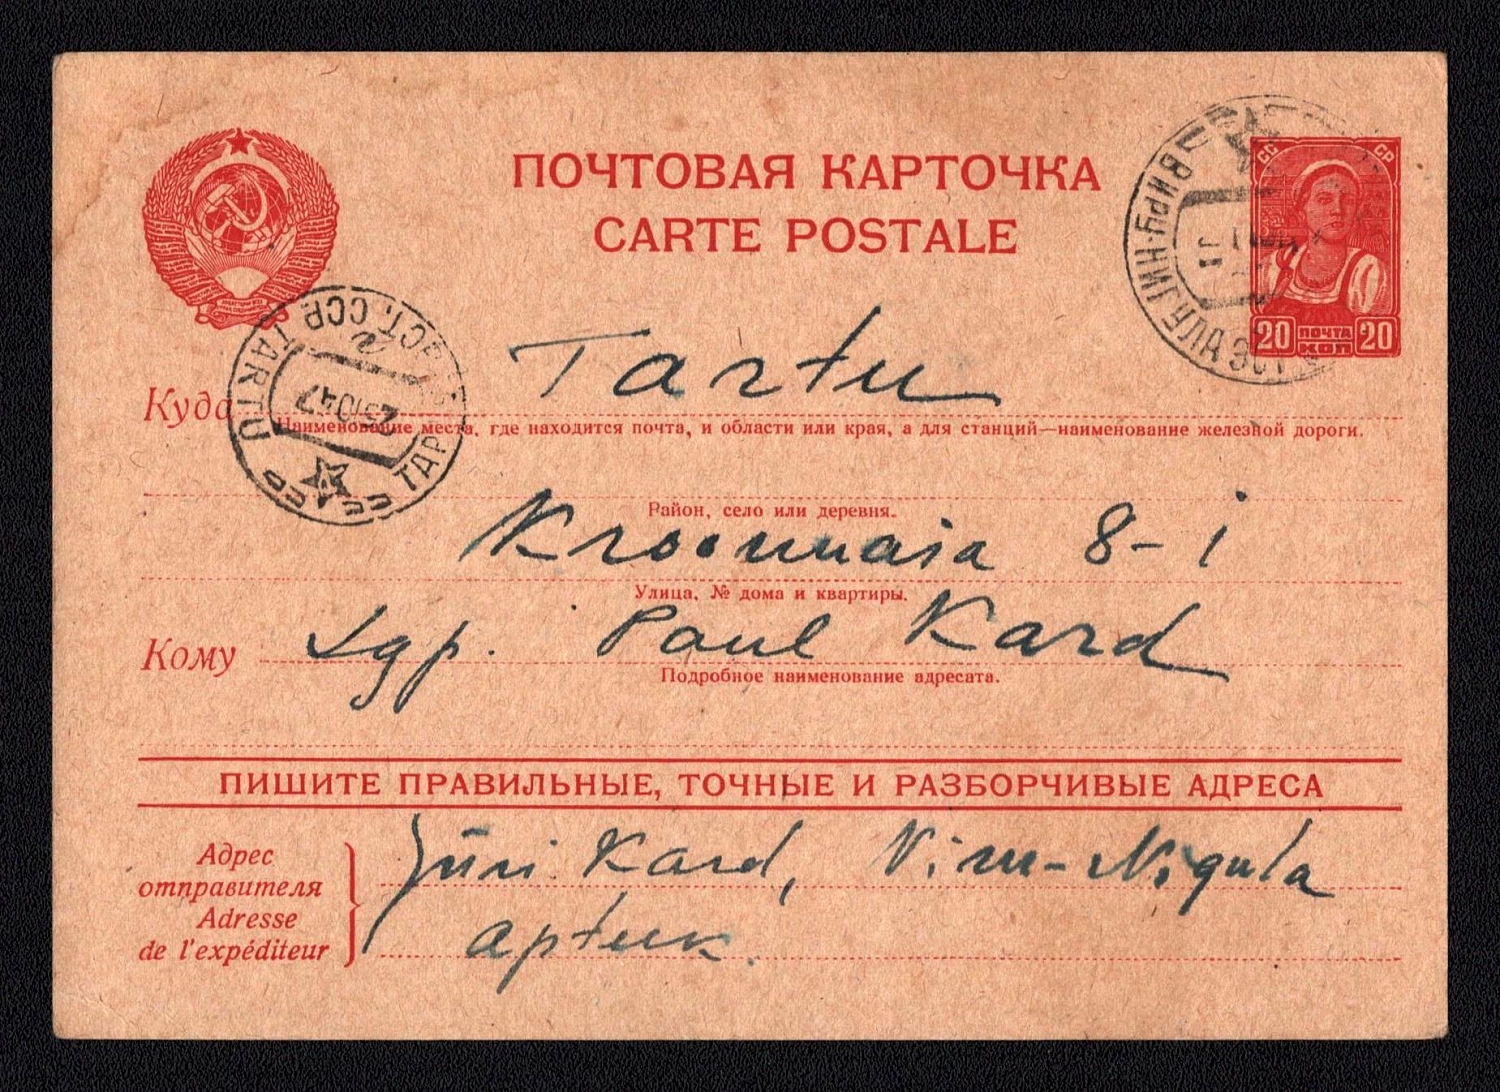 ПОЧТОВАЯ КАРТОЧКА
CARTE POSTALE
СС СР
20 ПОЧТА КОП 20
ВИРУ-НИГУЛА ЭСТ
ЭСТ. ССР TARTU
ТАР
25 10 47
Куда Tartu
Наименование места, где находится почта, и области или края, а для станций—наименование железной дороги.
Район, село или деревня.
Kroonuaia 8-1
Улица, № дома и квартиры.
Кому Lgp. Paul Kard
Подробное наименование адресата.
ПИШИТЕ ПРАВИЛЬНЫЕ, ТОЧНЫЕ И РАЗБОРЧИВЫЕ АДРЕСА
Адрес
отправителя
Adresse
de l'expéditeur
Jüri Kard, Viru-Nigula
apteek.